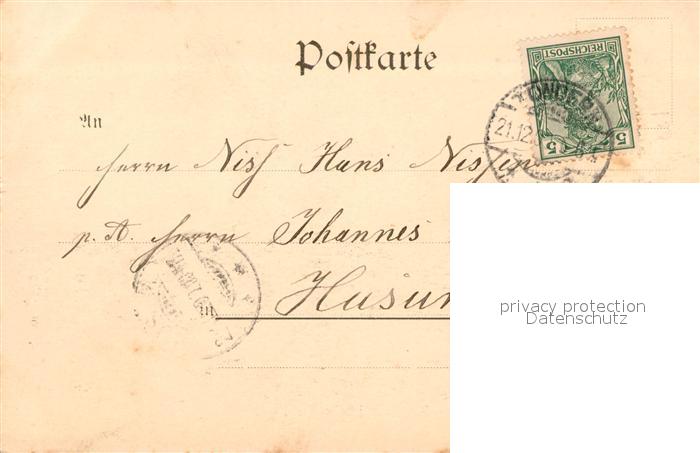 Postkarte
REICHSPOST
5 5
21.12.
An
Herrn Niss Hans Nissen
p. A. Herrn Johannes
in Husum
privacy protection
Datenschutz